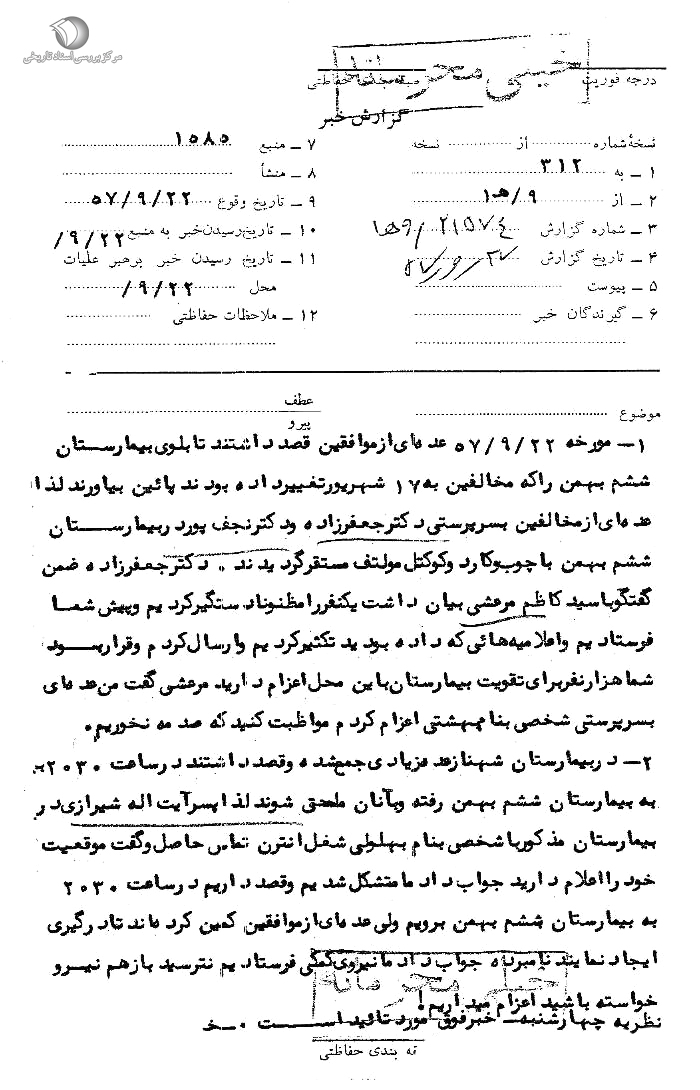 مرکز بررسی اسناد تاریخی
خیلی محرمانه
درجه فوریت
طبقه‌بندی حفاظتی
گزارش خبر
نسخهٔ شماره ........ از ........ نسخه
۱ ـ به ۳۱۲
۲ ـ از ۹/ه‍ ۱
۳ ـ شماره گزارش
۴ ـ تاریخ گزارش
۵ ـ پیوست
۶ ـ گیرندگان خبر
۷ ـ منبع ۱۵۸۵
۸ ـ منشأ
۹ ـ تاریخ وقوع ۵۷/۹/۲۲
۱۰ ـ تاریخ رسیدن خبر به منبع ۹/۲۲/
۱۱ ـ تاریخ رسیدن خبر برهبر عملیات
محل ۹/۲۲/
۱۲ ـ ملاحظات حفاظتی
موضوع
عطف
پیرو
۱ـ مورخه ۵۷/۹/۲۲ عده‌ای از موافقین قصد داشتند تابلوی بیمارستان
ششم بهمن را که مخالفین به ۱۷ شهریور تغییر داده بودند پائین بیاورند لذا
عده‌ای از مخالفین بسرپرستی دکتر جعفرزاده و دکتر نجف پور در بیمارستان
ششم بهمن با چوب و کارد و کوکتل مولتف مستقر گردیدند. دکتر جعفرزاده ضمن
گفتگو با سید کاظم مرعشی بیان داشت یکنفر را مظنونا دستگیر کردیم و پیش شما
فرستادیم و اعلامیه‌هائی که داده بودید تکثیر کردیم و ارسال کردم و قرار بود
شما هزار نفر برای تقویت بیمارستان باین محل اعزام دارید مرعشی گفت من عده‌ای
بسرپرستی شخصی بنام بهشتی اعزام کردم مواظبت کنید که صدمه نخوریم.
۲ـ در بیمارستان شهناز عده زیادی جمع شده و قصد داشتند در ساعت ۲۰۳۰
به بیمارستان ششم بهمن رفته و بآنان ملحق شوند لذا پسر آیت اله شیرازی در
بیمارستان مذکور با شخصی بنام بهلولی شغل انترن تماس حاصل و گفت موقعیت
خود را اعلام دارید جواب داد ما متشکل شدیم و قصد داریم در ساعت ۲۰۳۰
به بیمارستان ششم بهمن برویم ولی عده‌ای از موافقین کمین کرده‌اند تا درگیری
ایجاد نمایند نامبرده جواب داد ما نیروی کمکی فرستادیم نترسید باز هم نیرو
خواسته باشید اعزام میداریم!
نظریه چهارشنبه ـ خبر فوق مورد تائید است ۰ ـ خـ
خیلی محرمانه
ته بندی حفاظتی